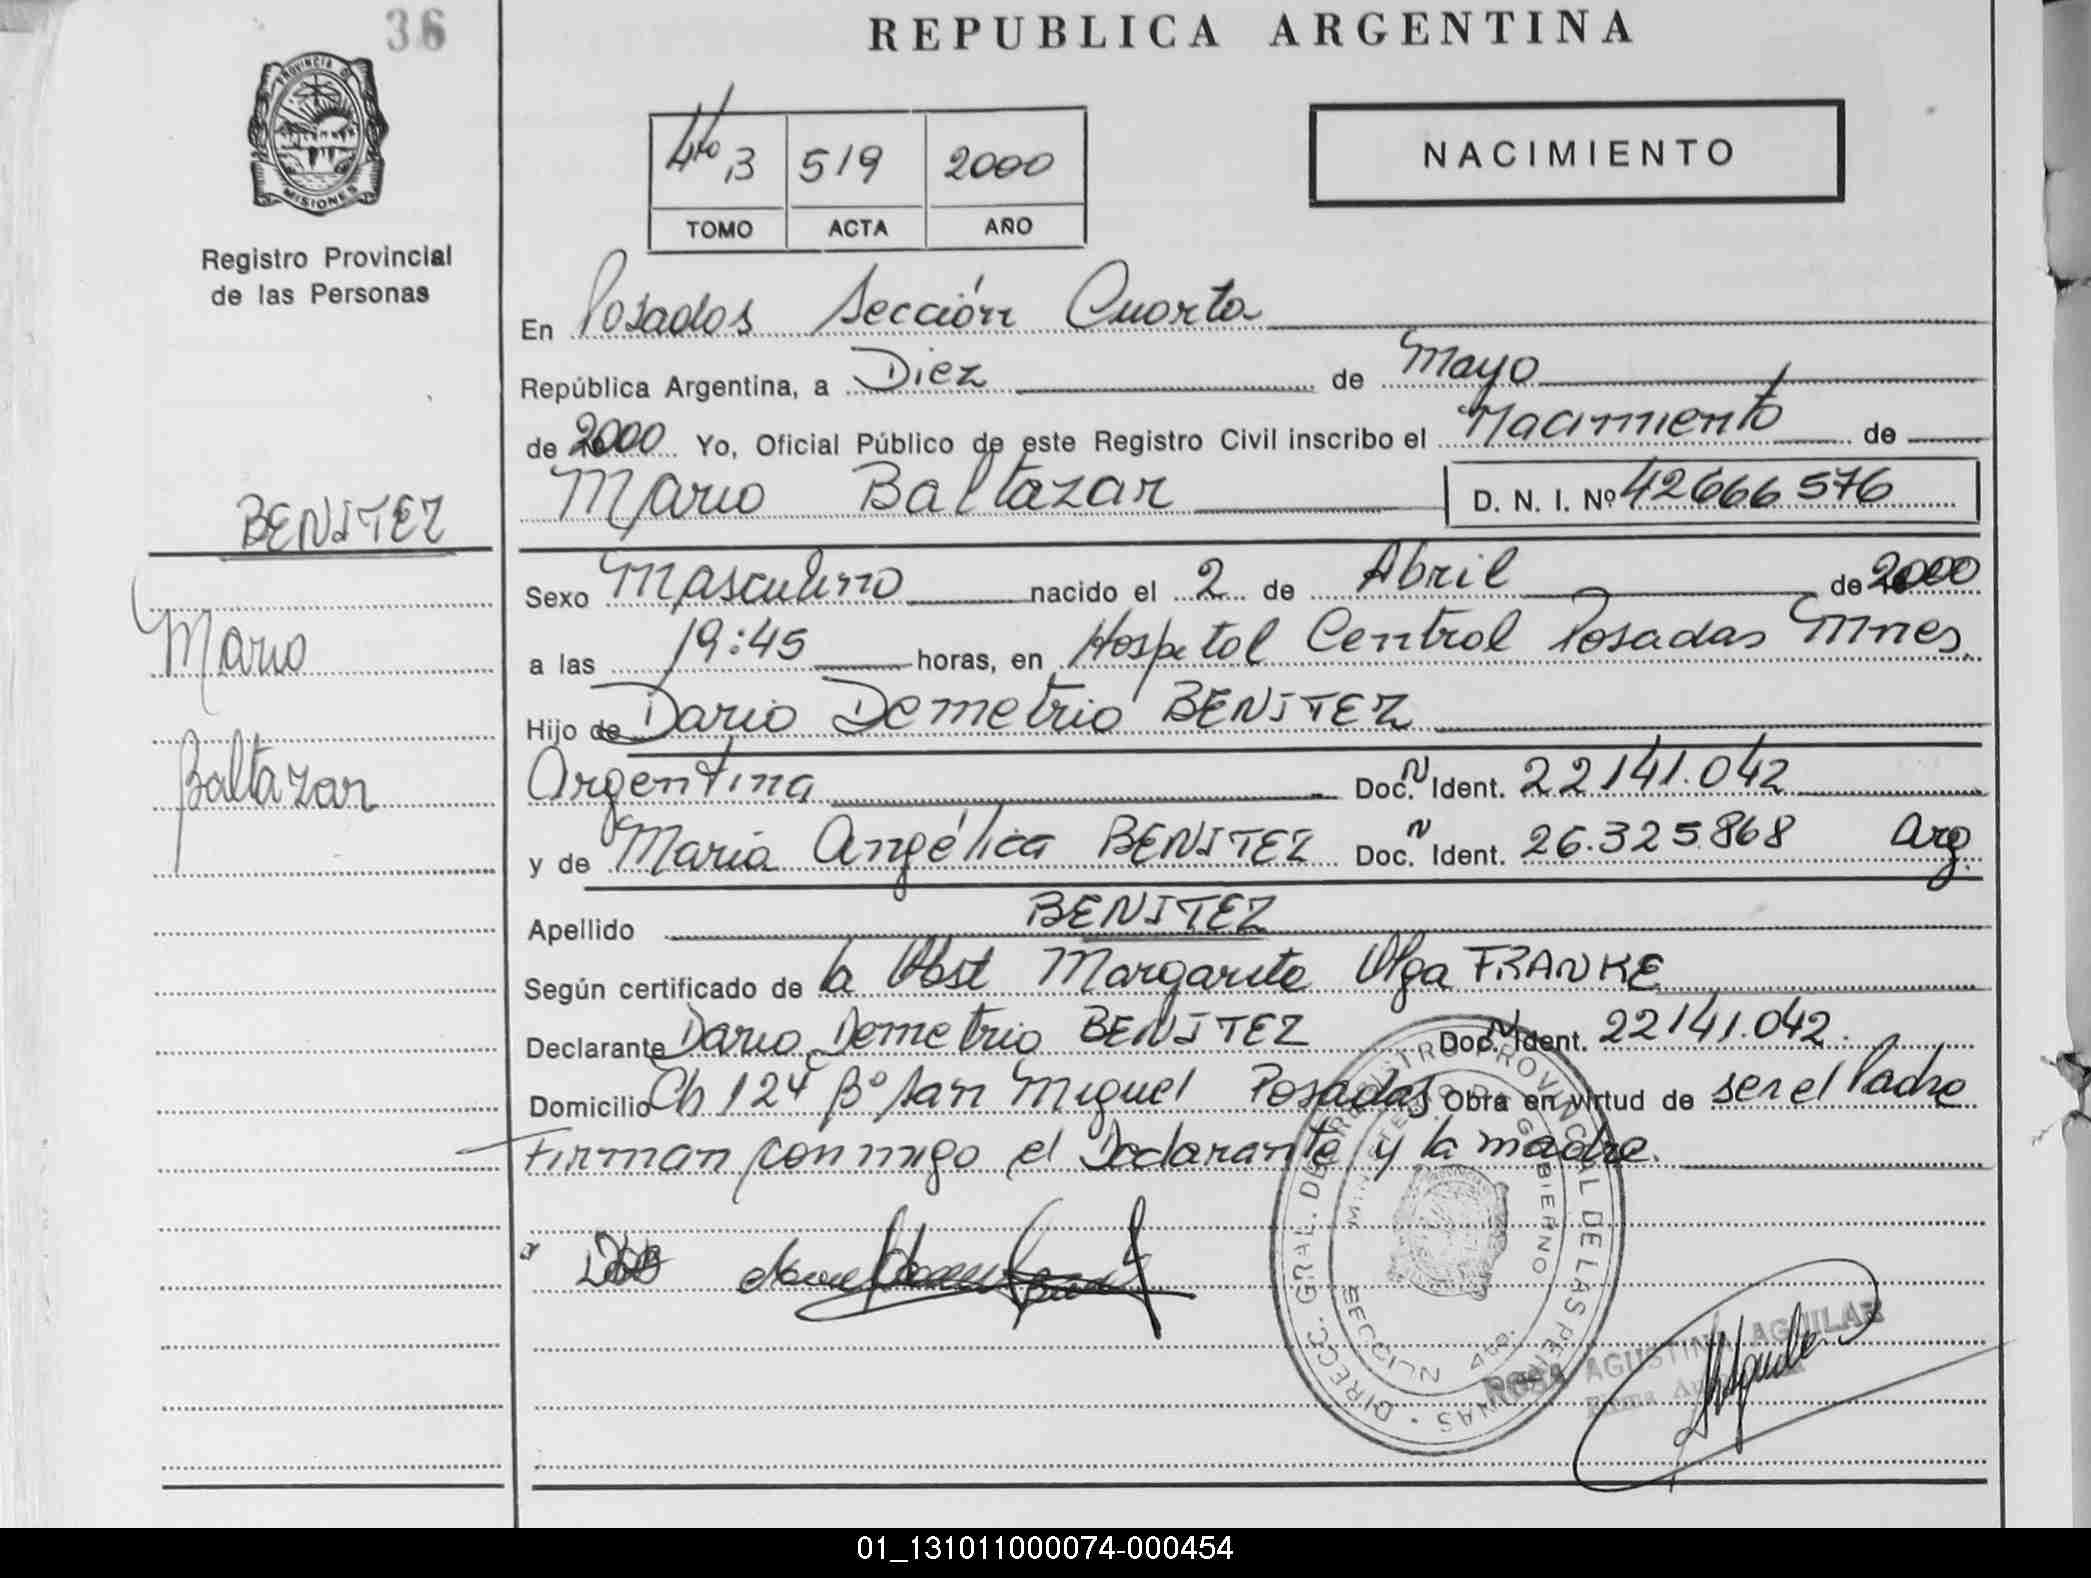 36
REPUBLICA ARGENTINA
PROVINCIA D
MISIONES
Registro Provincial
de las Personas
4to 13 519 2000
TOMO ACTA AÑO
NACIMIENTO
En Posadas Sección Cuarta
República Argentina, a Diez de Mayo
de 2000 Yo, Oficial Público de este Registro Civil inscribo el Nacimiento de
Mario Baltazar D. N. I. Nº 42666576
BENITEZ
Mario
Baltazar
Sexo Masculino nacido el 2 de Abril de 2000
a las 19:45 horas, en Hospital Central Posadas Mnes.
Hijo de Dario Demetrio BENITEZ
Argentina Doc. N Ident. 22141.042
y de Maria Angélica BENITEZ Doc. N Ident. 26.325.868 Arg.
Apellido BENITEZ
Según certificado de la Obst Margarita Olga FRANKE
Declarante Dario Demetrio BENITEZ Doc. N Ident. 22141.042.
Domicilio Ch 124 Bº San Miguel Posadas Obra en virtud de ser el Padre
Firman conmigo el Declarante y la madre.
DIRECC. GRAL. DE REGISTRO PROVINCIAL DE LAS PERSONAS
MINISTERIO DE GOBIERNO
SECCION 4ta.
ROSA AGUSTINA AGUILAR
Firma
01_131011000074-000454